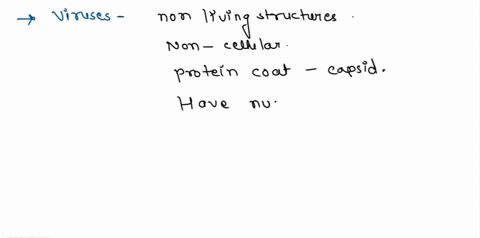 → Viruses - non living structures.
Non - cellular.
protein coat - capsid.
Have nu